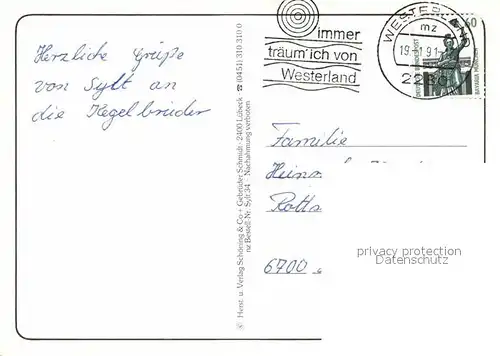 Herzliche Grüße
von Sylt an
die Kegelbrüder
immer
träum' ich von
Westerland
WESTERLAND
mz
19.-1.91
2280
60
DEUTSCHE BUNDESPOST
BAVARIA MÜNCHEN
Herst. u. Verlag Schöning & Co + Gebrüder Schmidt · 2400 Lübeck · ☎ (0451) 310 310 0
nz Bestell-Nr. Sylt 34 · Nachahmung verboten
Familie
Heinz
6700
privacy protection
Datenschutz